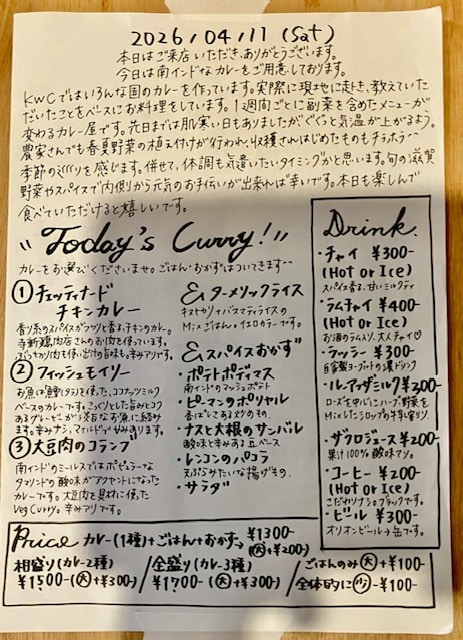 2026/04/11 (Sat)
本日はご来店いただき、ありがとうございます。
今日は南インドなカレーをご用意しております。
KWCではいろんな国のカレーを作っています。実際に現地に赴き、教えていた
だいたことをベースにお料理をしています。1週間ごとに副菜を含めたメニューが
変わるカレー屋です。先日までは肌寒い日もありましたがぐぐぐと気温が上がるよう。
農家さんでも春夏野菜の植え付けが行われ、収穫されはじめたものもチラホラ〜
季節のを感じます。併せて、体調も気遣いたいタイミングかと思います。旬の滋賀
野菜やスパイスで内側から元気のお手伝いが出来れば幸いです。本日も楽しんで
食べていただけると嬉しいです。
"Today's Curry!"
カレーをお選びくださいませ。ごはん・おかずはついてきます〜
① チェッティナード
チキンカレー
香り系のスパイスがガツンと香るチキンのカレー。
さんのお肉を使っています。
出汁の旨味も。辛みアリです。
② フィッシュモイリー
お魚は鱈(タラ)を使った、ココナッツミルク
ベースのカレーです。こっくりとした旨みがコク
あるグレービーが淡白なお魚に絡み
ます。辛みナシ、マイルド。
③ 大豆肉のコランブ
南インドのミールスではポピュラーな
タマリンドの酸味がアクセントになった
カレーです。大豆肉を具材に使った
Veg Curry。辛みアリです。
& ターメリックライス
キヌヒカリ+バスマティライスの
Mixごはん。イエローカラーです。
& スパイスおかず
・ポテトポディマス
南インドのマッシュポテト
・ピーマンのポリヤル
香ばしさある炒めもの。
・ナスと大根のサンバル
酸味と辛みある豆ベース
・レンコンのパコラ
天ぷらみたいな揚げもの。
・サラダ
Drink.
・チャイ ¥300-
(Hot or Ice)
スパイス香る、甘いミルクティ
・ラムチャイ ¥400-
(Hot or Ice)
お酒のラム入り、大人チャイ♡
・ラッシー ¥300-
自家製ヨーグルトの濃ドリンク
・ルーアフザミルク ¥300-
ローズを中心にハーブ、野菜を
Mixしたシロップの牛乳割り。
・ザクロジュース ¥200-
果汁100% 酸味アリ。
・コーヒー ¥200-
(Hot or Ice)
こだわりナシ。ブラックです。
・ビール ¥300-
オリオンビール→缶です。
Price カレー(1種)+ごはん+おかず→ ¥1300-
(大+¥200-)
相盛り(カレー2種)
¥1500-(大+¥300-)
全盛り(カレー3種)
¥1700-(大+¥300-)
ごはんのみ大+¥100-
全体的に小-¥100-